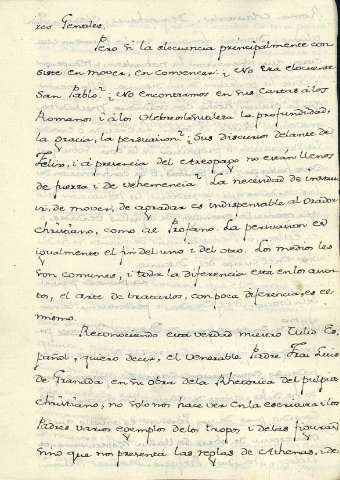 res Genales.
Pero si la elocuencia principalmente con
siste en mover, en convencer: ¿No era elocuente
San Pablo? ¿No encontramos en sus cartas á los
Romanos i á los Hebreos la profundidad,
la gracia, la persuasion? ¿Sus discursos delante de
Felix, i á presencia del Areopago no están llenos
de fuerza i de vehemencia? La necesidad de instru
ir, de mover, de agradar es indispensable al Orador
Christiano, como al Profano. La persuasion es
igualmente el fin del uno i del otro. Los medios les
son comunes, i toda la diferencia está en los asun
tos, el arte de tratarlos, con poca diferencia, es el
mismo.
Reconociendo esta verdad nuestro Tulio Es
pañol, quiero decir, el Venerable Padre Frai Luis
de Granada en su obra de la Rhetorica del pulpito
Christiano, no solo nos hace ver en la escritura i los
Padres varios exemplos de los tropos i de las figuras
sino que nos presenta las reglas de Athenas, i de